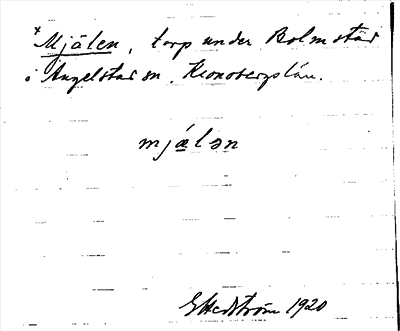 * Mjälen, torp under Bolmstad
i Angelstad sn, Kronobergs län.
mjälən
G Hedström 1920